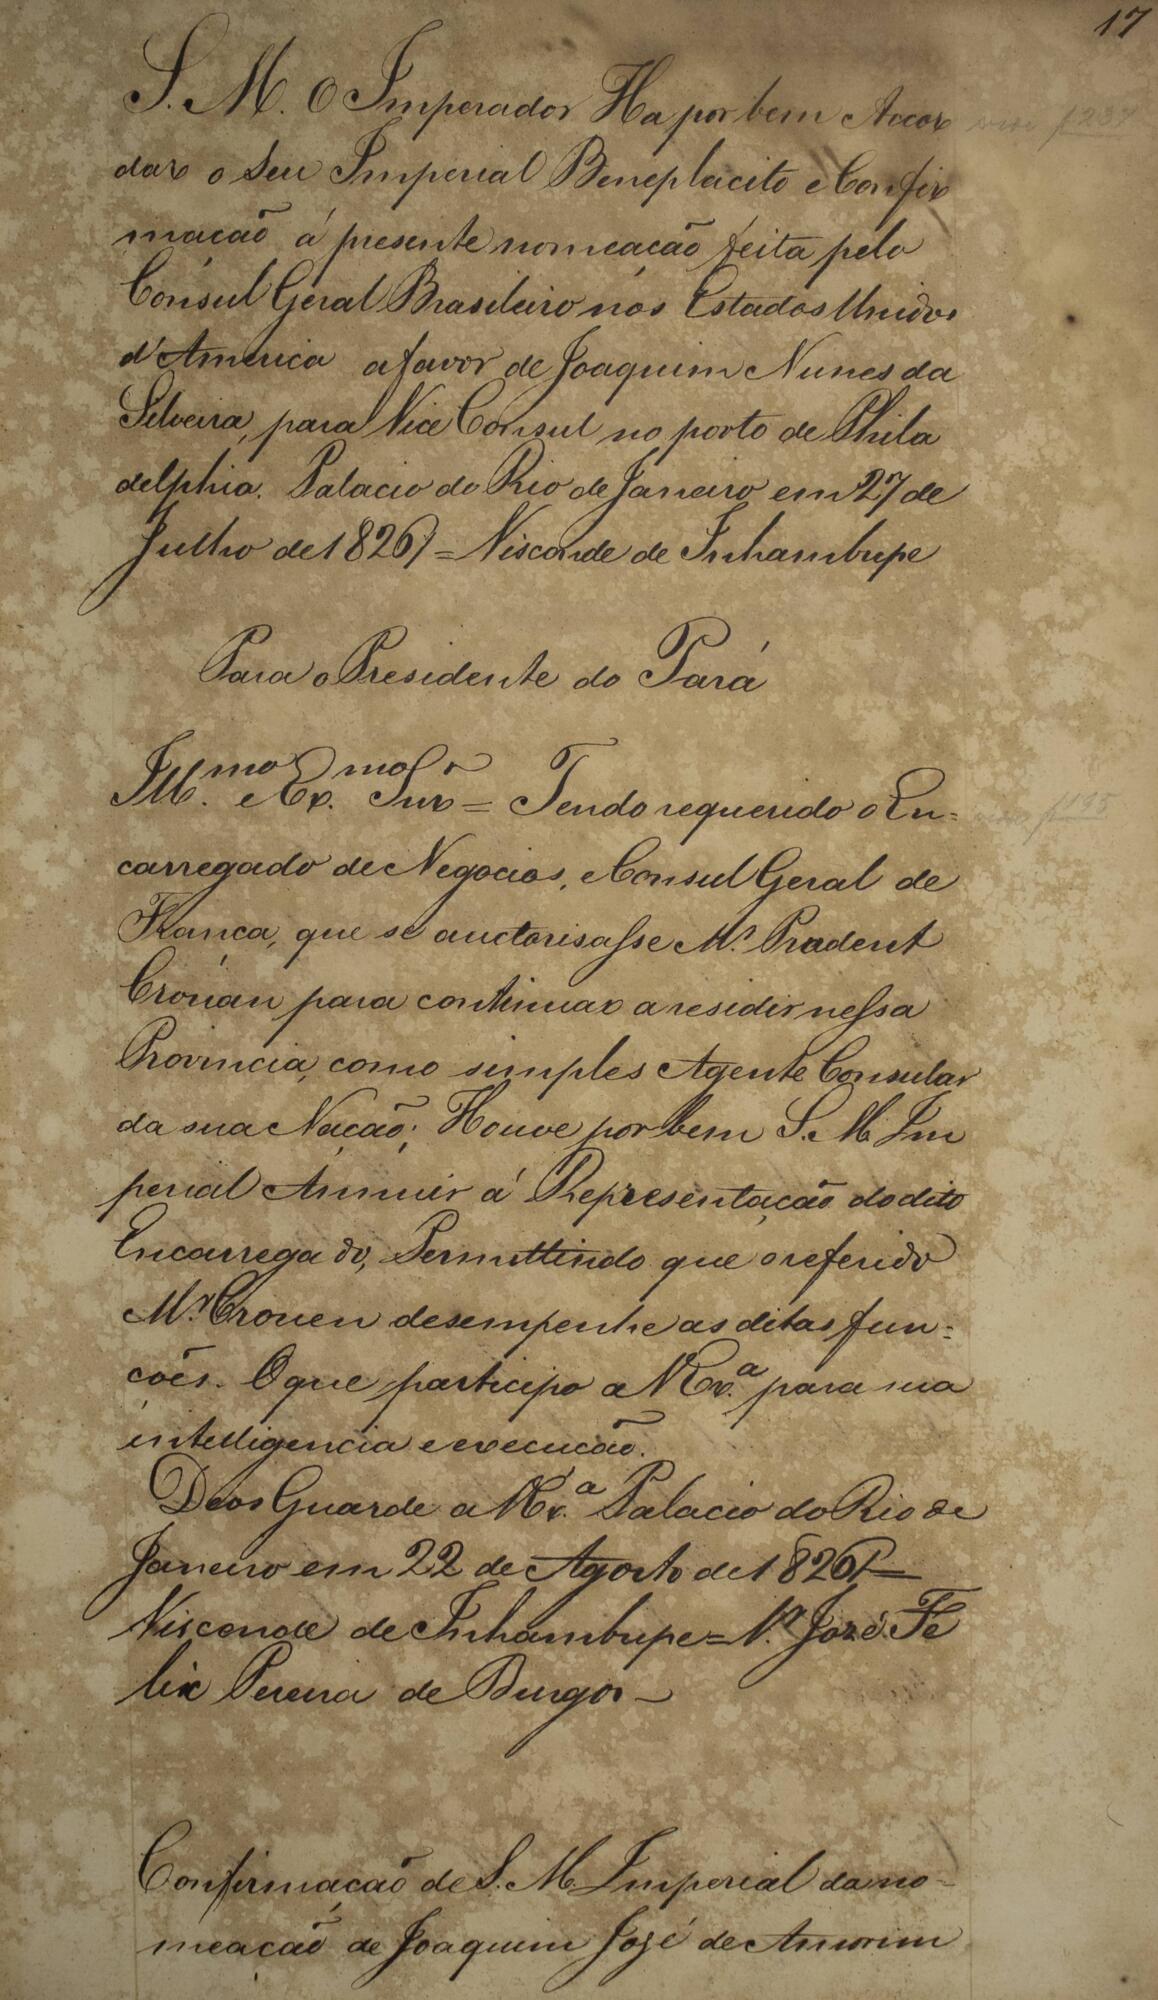 17
S. M. O Imperador Ha por bem Accor
dar o Seu Imperial Beneplacito e Confir
mação á presente nomeação feita pelo
Consul Geral Brasileiro nos Estados Unidos
d'America a favor de Joaquim Nunes da
Silveira, para Vice Consul no porto de Phila
delphia. Palacio do Rio de Janeiro em 27 de
Julho de 1826 = Visconde de Inhambupe
Para o Presidente do Pará
Ill.mo e Ex.mo Snr = Tendo requerido o En=
carregado de Negocios, e Consul Geral de
França, que se auctorisasse Mr. Prudent
Crouan para continuar a residir nessa
Provincia, como simples Agente Consular
da sua Nação; Houve por bem S. M. Im
perial Annuir á Representação do dito
Encarregado, Permittindo que o referido
Mr. Crouen desempenhe as ditas fun=
ções. O que participo a V Ex.a para sua
intelligencia e execução.
Deos Guarde a V Ex.a Palacio do Rio de
Janeiro em 22 de Agosto de 1826 =
Visconde de Inhambupe = Sr. José Fe
lix Pereira de Burgos -
Confirmação de S. M. Imperial da no-
meação de Joaquim José de Amorim